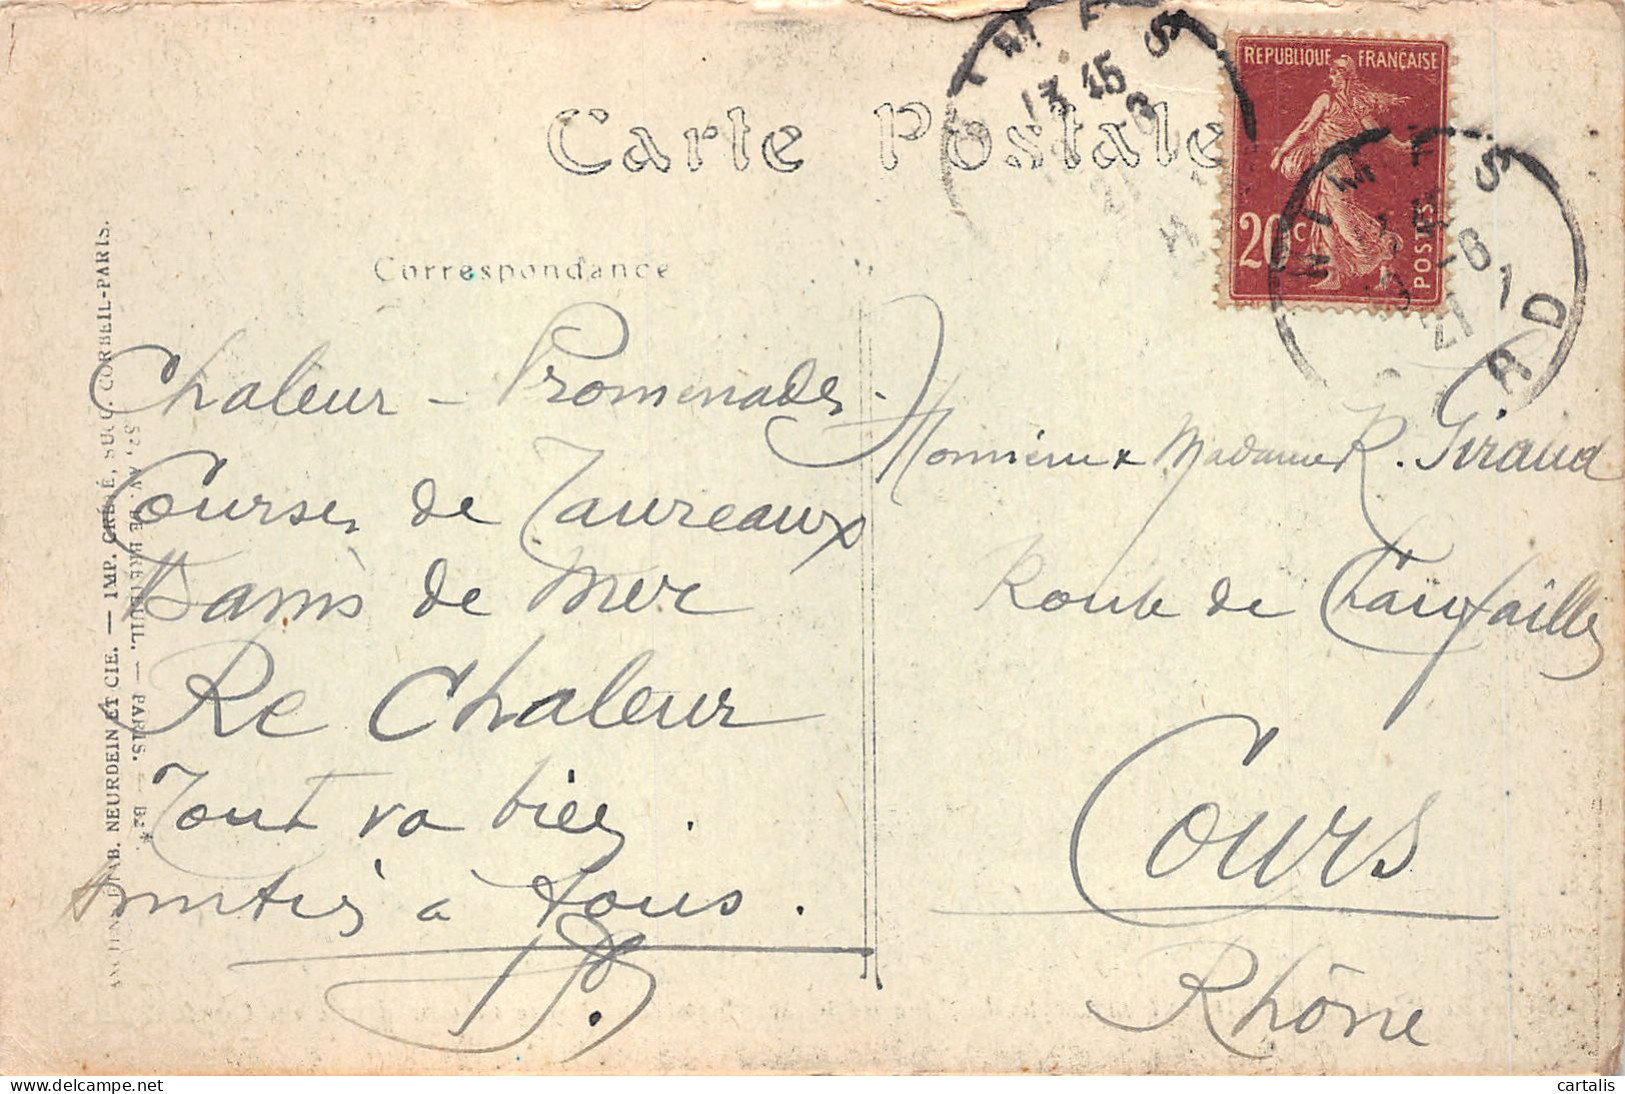 Carte Postale
REPUBLIQUE FRANÇAISE
20c
POSTES
NIMES
13 45
21
NIMES
21
GARD
Correspondance
Chaleur - Promenades.
Courses de Taureaux
Bains de Mer
Re Chaleur
Tout va bien.
Amitiés à tous.
Monsieur & Madame R. Giraud
Route de Chauffailles
Cours
Rhône
ANCIENS ETAB. NEURDEIN ET CIE. — IMP. CRÉTÉ, SUCC. CORBEIL-PARIS.
52, AV. DE BRETEUIL. — PARIS. — B2*
cartalis